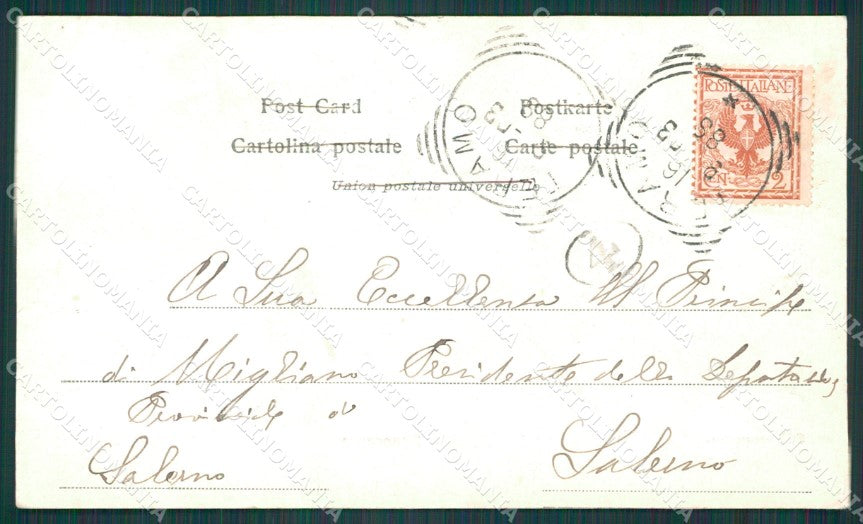 Post Card Postkarte
Cartolina postale Carte postale
Union postale universelle
POSTE ITALIANE
CEN. 2
TERAMO
TERAMO
A Sua Eccellenza Il Principe
di Migliano Presidente della Deputazione
Provinciale di
Salerno Salerno
CARTOLINOMANIA